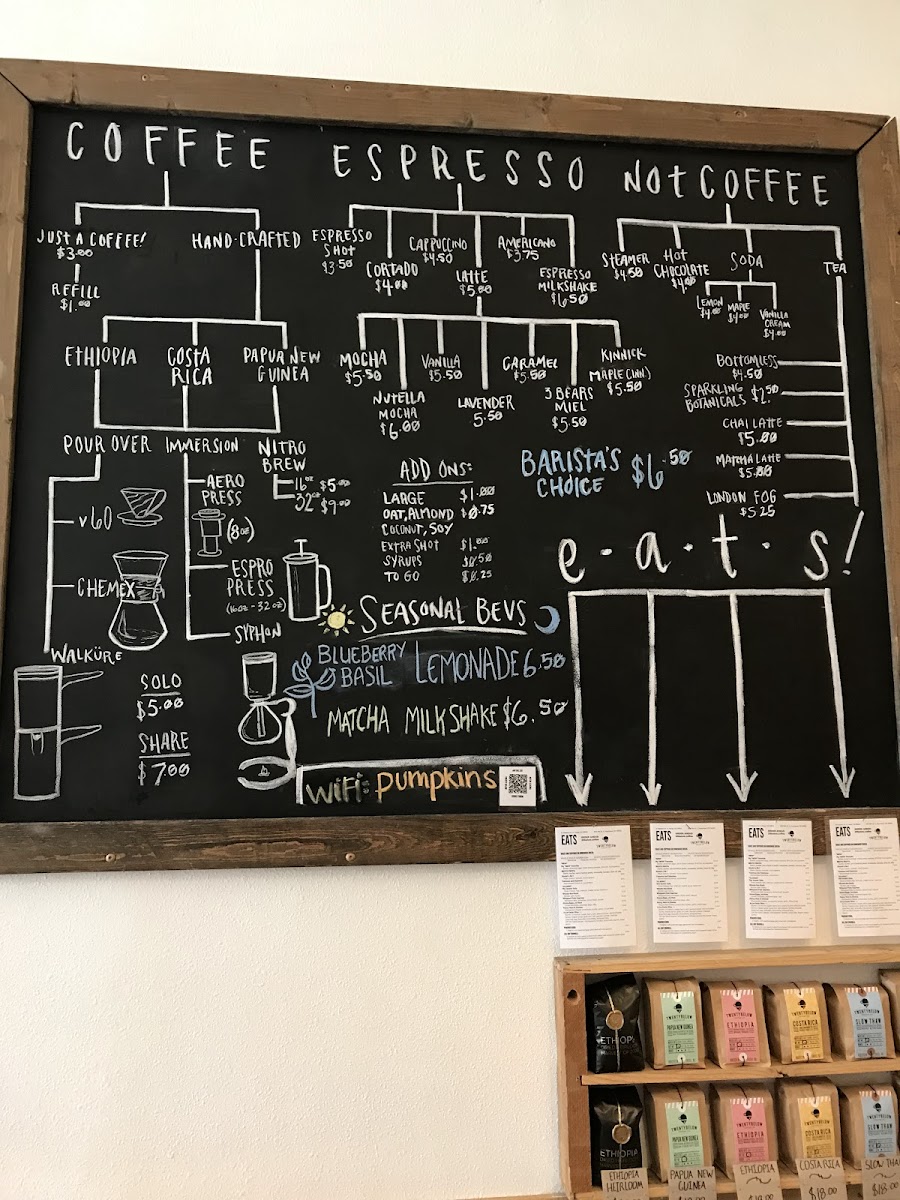 COFFEE
JUST A COFFEE!
$3.00
REFILL
$1.00
HAND-CRAFTED
ETHIOPIA
COSTA
RICA
PAPUA NEW
GUINEA
POUR OVER
V60
CHEMEX
WALKÜRE
IMMERSION
AERO
PRESS
(8oz)
ESPRO
PRESS
(16oz - 32oz)
SYPHON
NITRO
BREW
16oz $5.00
32oz $9.00
SOLO
$5.00
SHARE
$7.00
ESPRESSO
ESPRESSO
SHOT
$3.50
CORTADO
$4.00
CAPPUCCINO
$4.50
LATTE
$5.00
AMERICANO
$3.75
ESPRESSO
MILKSHAKE
$6.50
MOCHA
$5.50
NUTELLA
MOCHA
$6.00
VANILLA
$5.50
LAVENDER
5.50
CARAMEL
$5.50
3 BEARS
MIEL
$5.50
KINNICK
(MAPLE CINN)
$5.50
ADD ONS:
LARGE $1.00
OAT, ALMOND $0.75
COCONUT, SOY
EXTRA SHOT $1.00
SYRUPS $0.50
TO GO $0.25
BARISTA'S
CHOICE $6.50
SEASONAL BEVS
BLUEBERRY
BASIL LEMONADE 6.50
MATCHA MILKSHAKE $6.50
WiFi: pumpkins
NOT COFFEE
STEAMER
$4.50
HOT
CHOCOLATE
$4.00
SODA
LEMON
$4.00
MAPLE
$4.00
VANILLA
CREAM
$4.00
TEA
BOTTOMLESS
$4.50
SPARKLING
BOTANICALS $2.50
CHAI LATTE
$5.00
MATCHA LATTE
$5.00
LONDON FOG
$5.25
e·a·t·s!
EATS
EATS
EATS
EATS
ETHIOPIA
TWENTYBELOW
PAPUA NEW GUINEA
TWENTYBELOW
ETHIOPIA
TWENTYBELOW
COSTA RICA
TWENTYBELOW
SLOW THAW
ETHIOPIA
TWENTYBELOW
PAPUA NEW GUINEA
TWENTYBELOW
ETHIOPIA
TWENTYBELOW
COSTA RICA
TWENTYBELOW
SLOW THAW
ETHIOPIA
HEIRLOOM
PAPUA NEW
GUINEA
ETHIOPIA
COSTA RICA
$18.00
SLOW THA
$18.00